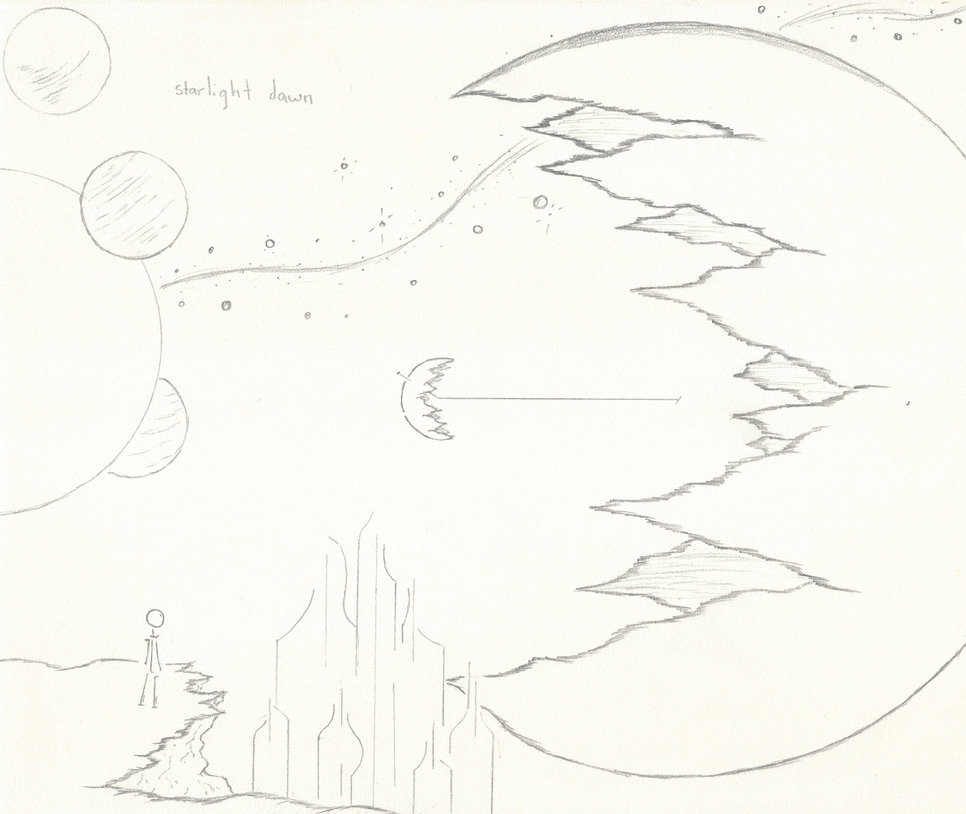 starlight dawn